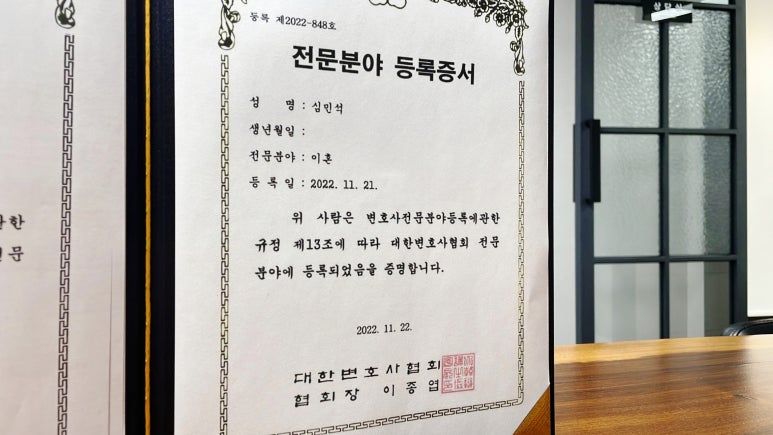 등록 제2022-848호
전문분야 등록증서
성 명 : 심민석
생년월일 :
전문분야 : 이혼
등 록 일 : 2022. 11. 21.
위 사람은 변호사전문분야등록에관한
규정 제13조에 따라 대한변호사협회 전문
분야에 등록되었음을 증명합니다.
2022. 11. 22.
대한변호사협회
협회장 이종엽
관한
전문